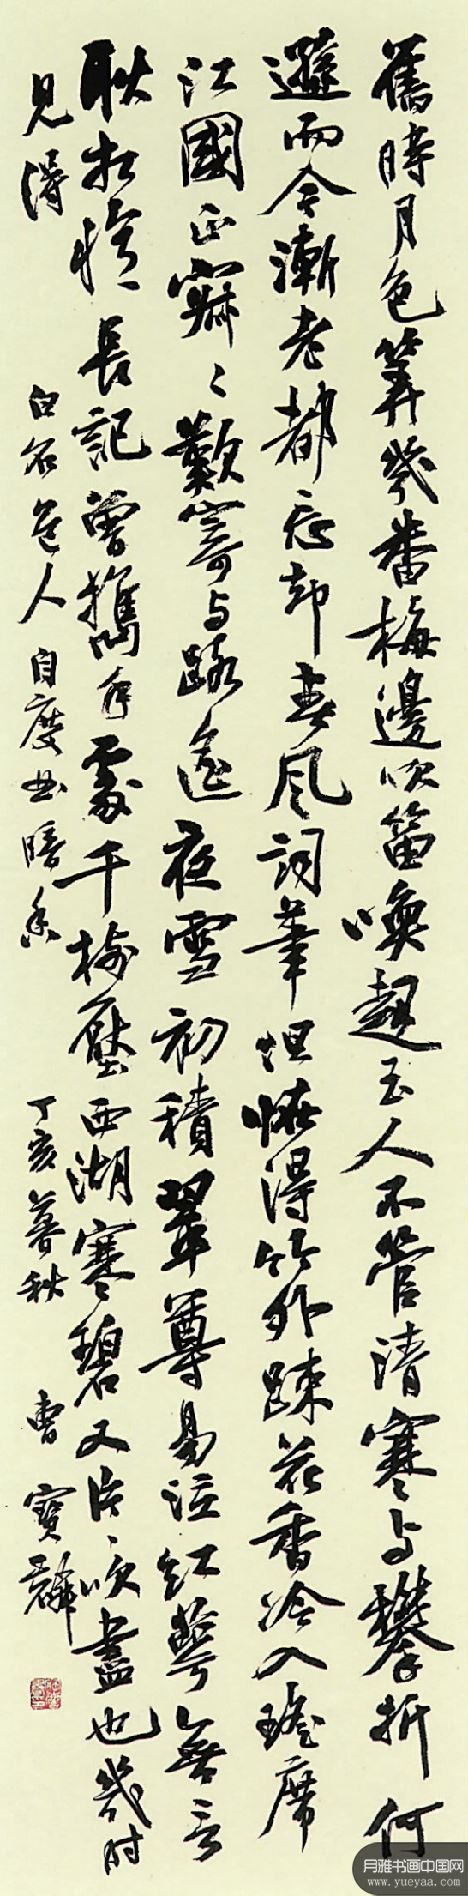 舊時月色算幾番梅邊吹笛喚起玉人不管清寒与攀折何
遜而今漸老都忘却春風詞筆但怪得竹外疎花香冷入瑤席
江國正寂〻歎寄与路遙夜雪初積翠尊易泣紅萼無言
耿相憶長記曾攜手處千樹壓西湖寒碧又片〻吹盡也幾时
見得
白石道人自度曲暗香
丁亥暮秋
曹寶麟
月雅书画中国网
www.yueyaa.com